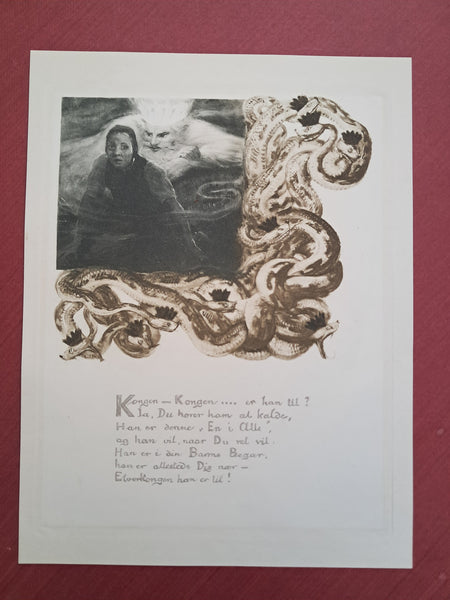 Kongen — Kongen .... er han til?
Ja, Du hører ham at kalde,
Han er denne „En i Alle",
og han vil, naar Du vel vil.
Han er i din Barms Begær,
han er allesteds Dig nær —
Elverkongen han er til!